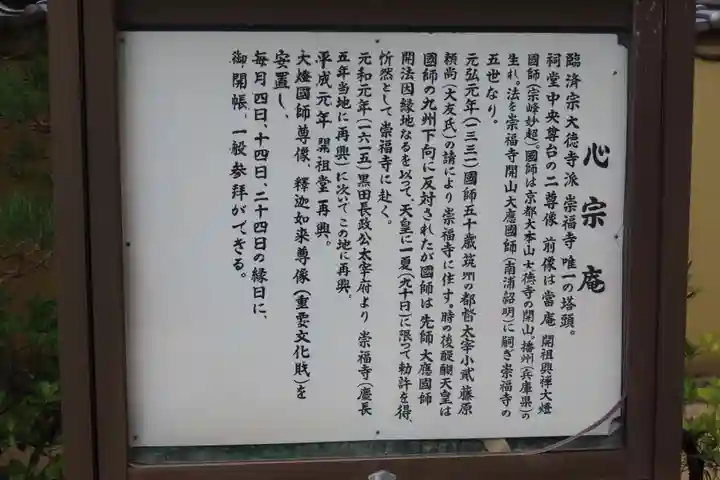 心宗庵
臨済宗大徳寺派 崇福寺 唯一の塔頭。
祠堂中央尊台の二尊像 前像は當庵 開祖興禅大燈
國師(宗峰妙超)。國師は京都大本山大徳寺の開山。播州(兵庫県)の
生れ。法を崇福寺開山大應國師(南浦紹明)に嗣ぎ崇福寺の
五世なり。
元弘元年(一三三一)國師五十歳筑州の都督太宰小貳藤原
頼尚(大友氏)の請により崇福寺に住す。時の後醍醐天皇は
國師の九州下向に反対されたが國師は先師大應國師
開法因縁地なるを以って、天皇に一夏(九十日)に限って勅許を得、
忻然として崇福寺に赴く。
元和元年(一六一五)黒田長政公太宰府より 崇福寺(慶長
五年当地に再興)に次いでこの地に再興。
平成元年 開祖堂再興。
大燈國師尊像、釋迦如来尊像(重要文化財)を
安置し、
毎月四日、十四日、二十四日の縁日に、
御開帳、一般参拜ができる。